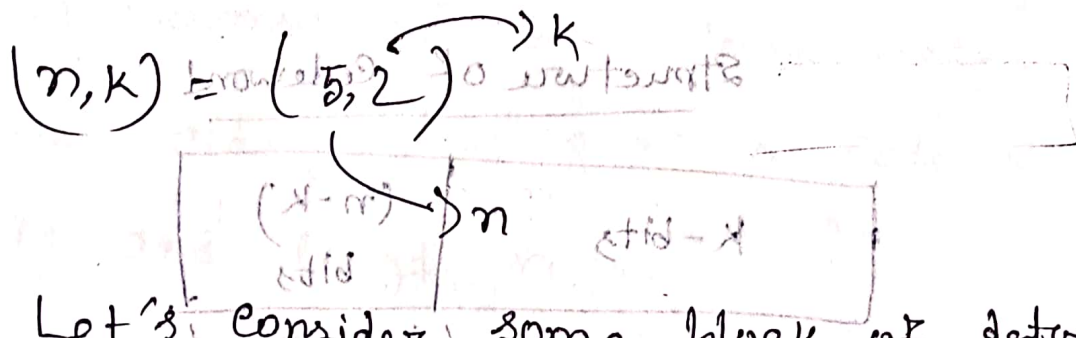 (n,k) = (5,2) k
n
Let's consider some block of data